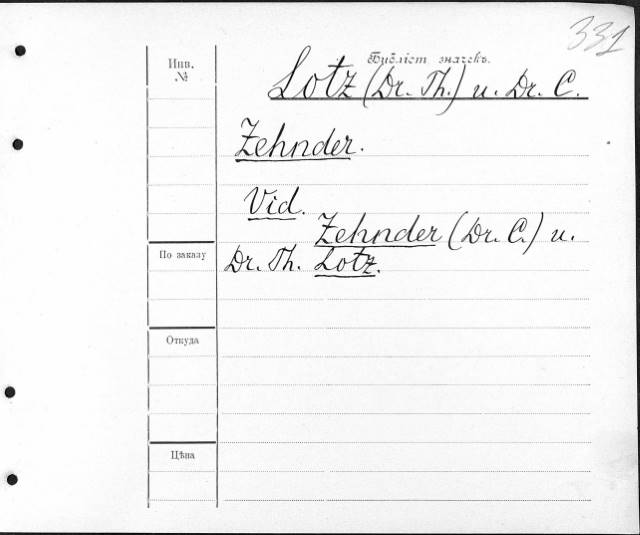 331
Библіот значекъ.
Инв.
№
Lotz (Dr. Th.) u. Dr. C.
Zehnder.
Vid.
Zehnder (Dr. C.) u.
Dr. Th. Lotz.
По заказу
Откуда
Цѣна